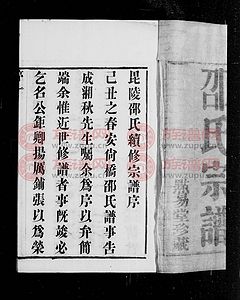 邵氏宗譜
懿易堂珍藏
毘陵邵氏續修宗譜序
己丑之春安尙橋邵氏譜事告
成湘秋先生囑余爲序以弁簡
端余惟近世修譜者事旣竣必
乞名公鉅卿揚厲鋪張以爲榮